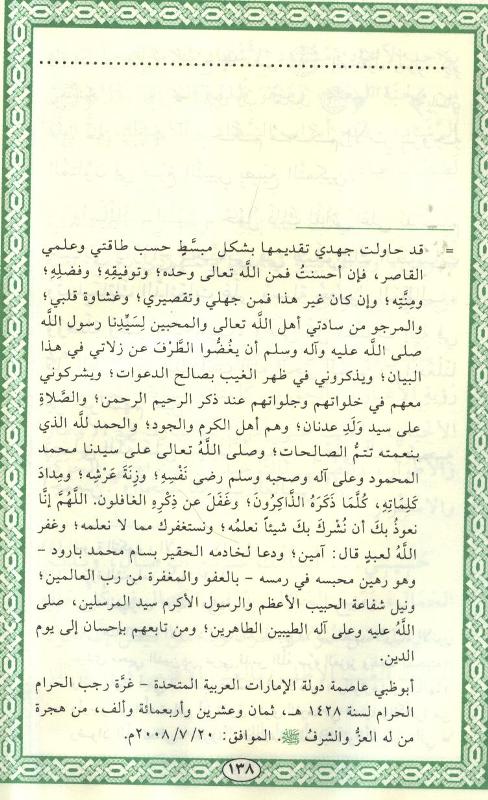 = قد حاولت جهدي تقديمها بشكل مبسَّطٍ حسب طاقتي وعلمي
القاصر، فإن أحسنتُ فمن اللَّه تعالى وحده؛ وتوفيقِهِ؛ وفضلِهِ؛
ومِنَّتِه؛ وإن كان غير هذا فمن جهلي وتقصيري؛ وغشاوة قلبي؛
والمرجو من سادتي أهل اللَّه تعالى والمحبين لِسَيِّدِنا رسول اللَّه
صلى اللَّه عليه وآله وسلم أن يغُضُّوا الطَّرْفَ عن زلاتي في هذا
البيان؛ ويذكروني في ظهر الغيب بصالح الدعوات؛ ويشركوني
معهم في خلواتهم وجلواتهم عند ذكر الرحيم الرحمن؛ والصَّلاةِ
على سيد وَلَدِ عدنان؛ وهم أهل الكرم والجود؛ والحمد للَّه الذي
بنعمته تتمُّ الصالحات؛ وصلى اللَّهُ تعالى على سيدنا محمد
المحمود وعلى آله وصحبه وسلم رضى نَفْسِهِ؛ وزِنَةَ عَرْشِهِ؛ ومِدادَ
كَلِمَاتِهِ، كُلَّمَا ذَكَرَهُ الذَّاكِرُونَ؛ وغَفَلَ عن ذِكْرِهِ الغافلون. اللَّهُمَّ إنَّا
نعوذُ بكَ أن نُشْرِكَ بكَ شيئاً نعلمُه؛ ونستغفرك مما لا نعلمه؛ وغفر
اللَّهُ لعبدٍ قال: آمين؛ ودعا لخادمه الحقير بسام محمد بارود -
وهو رهين محبسه في رمسه - بالعفو والمغفرة من رب العالمين؛
ونيل شفاعة الحبيب الأعظم والرسول الأكرم سيد المرسلين، صلى
اللَّهُ عليه وعلى آله الطيبين الطاهرين؛ ومن تابعهم بإحسان إلى يوم
الدين.
أبوظبي عاصمة دولة الإمارات العربية المتحدة - غرَّة رجب الحرام
الحرام لسنة ١٤٢٨ هـ، ثمان وعشرين وأربعمائة وألف، من هجرة
من له العزُّ والشرفُ ﷺ. الموافق: ٢٠٠٨/٧/٢٠م.
١٣٨